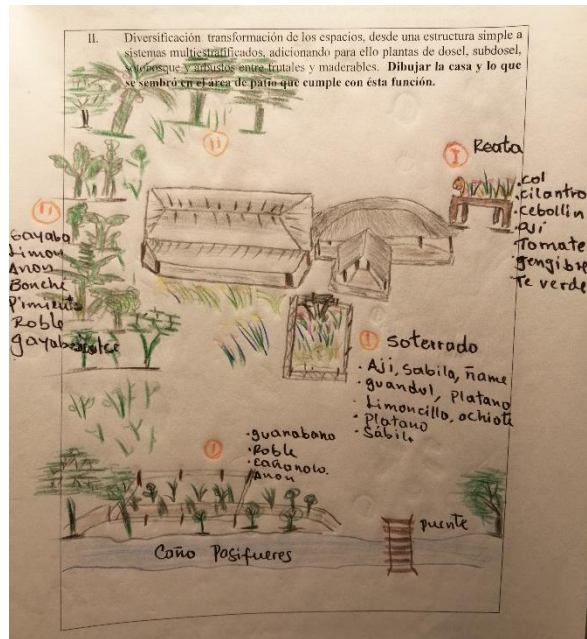 II. Diversificación transformación de los espacios, desde una estructura simple a
sistemas multiestratificados, adicionando para ello plantas de dosel, subdosel,
sotobosque y arbustos entre frutales y maderables. Dibujar la casa y lo que
se sembró en el área de patio que cumple con ésta función.
11
I Reata
.col
.cilantro
.cebollin
.Ají
Tomate
gengibre
Te verde
11
Gayaba
Limon
Anon
Bonche
Pimienta
Roble
gayaba
I soterrado
· Ají, sabila, ñame
· guandul, Platano
· Limoncillo, achiote
· Platano
· Sábila
I
·guanabano
·Roble
·Anon
puente
Caño Posifueres